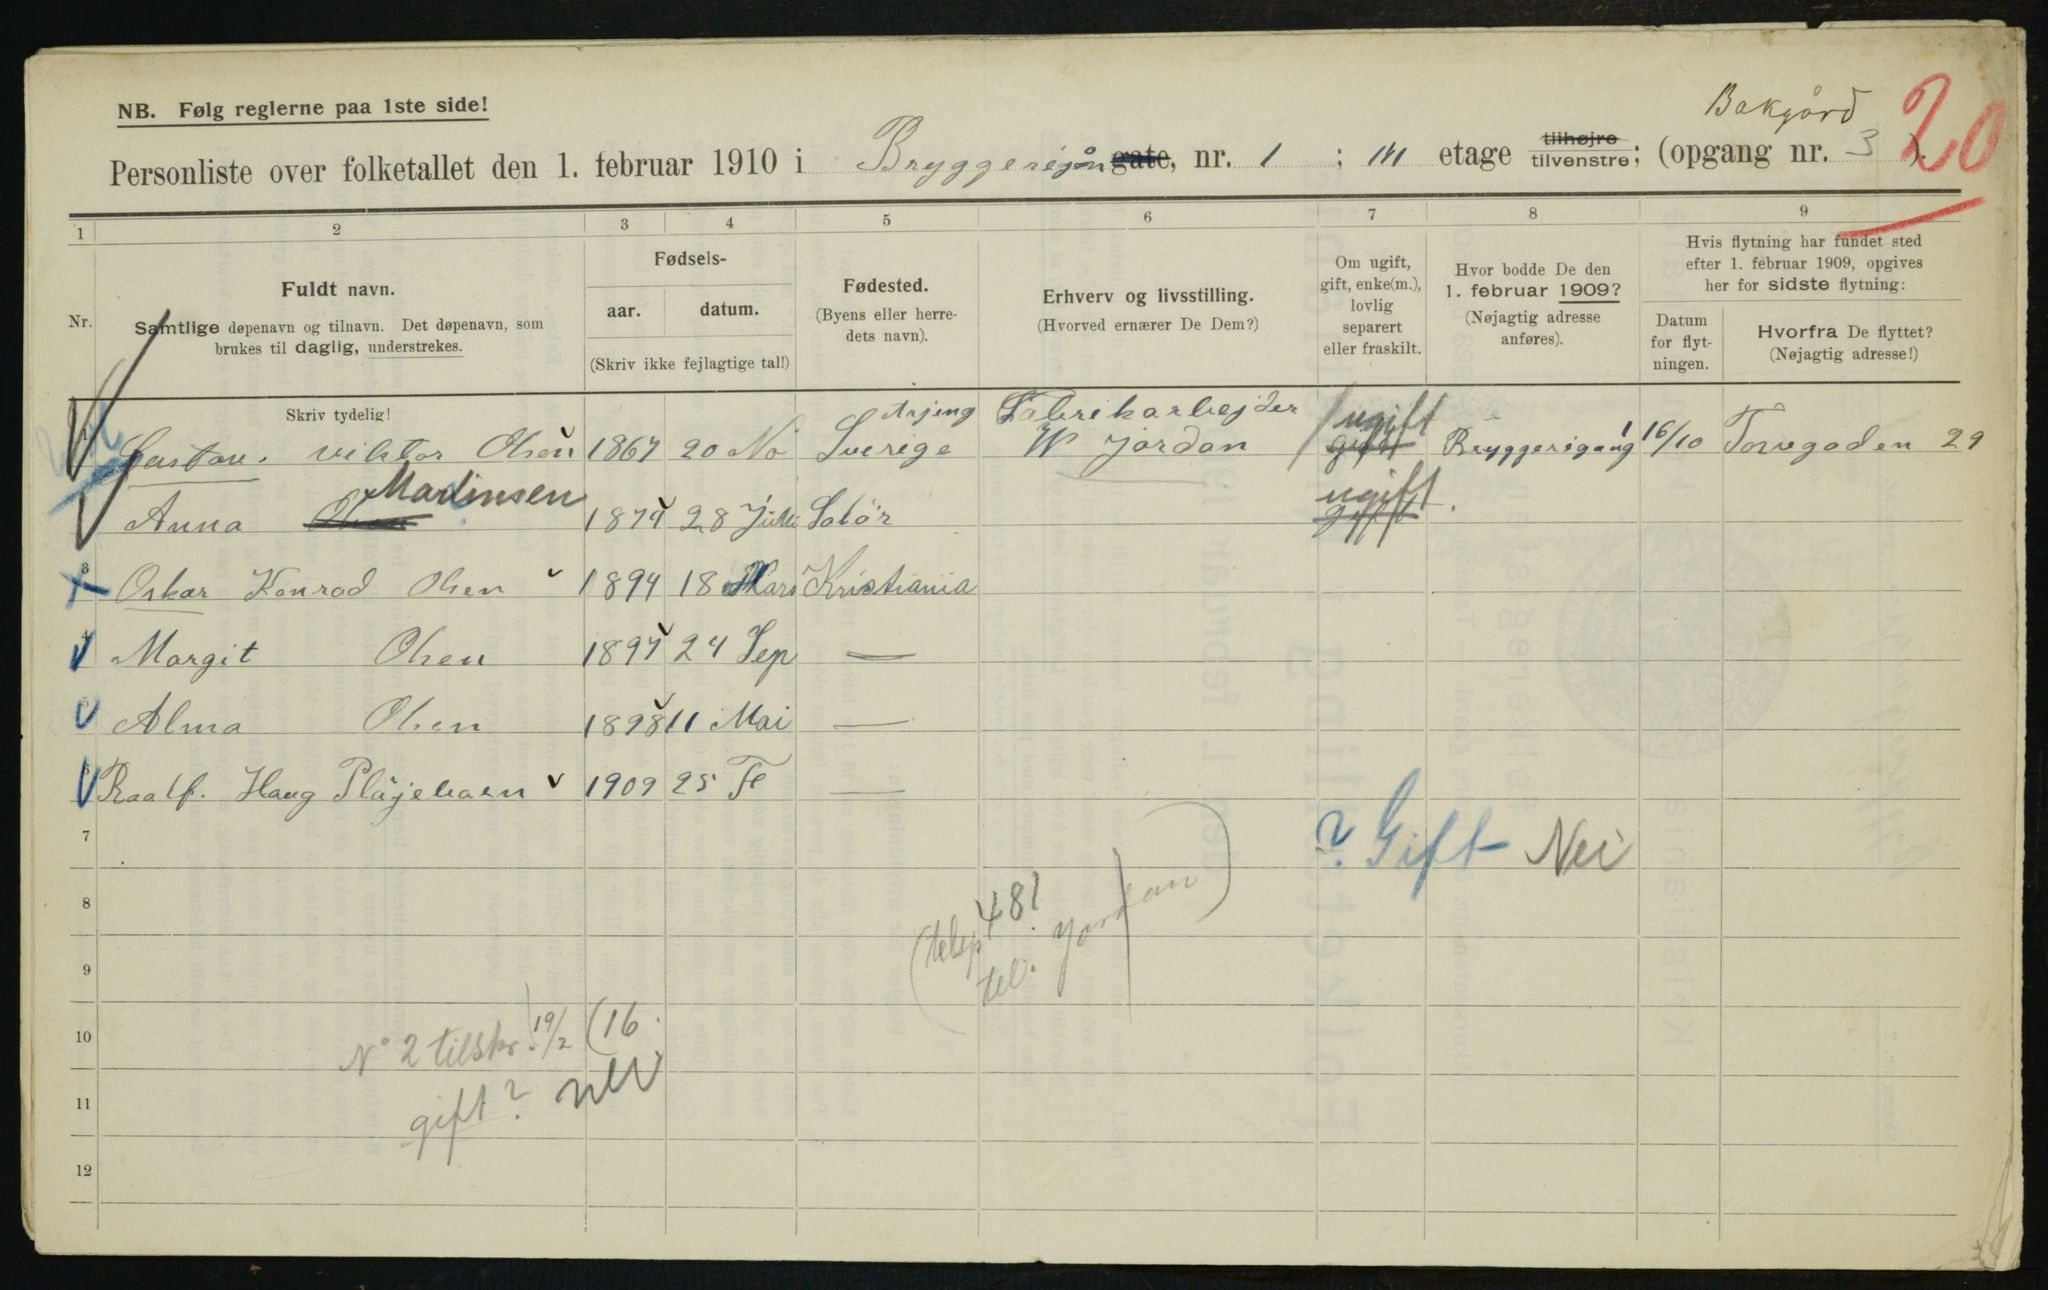 Bakgård 20
NB. Følg reglerne paa 1ste side!
Personliste over folketallet den 1. februar 1910 i Bryggerigån gate, nr. 1 ; etage tilhøjre tilvenstre; (opgang nr. 3 ).
1 2 3 4 5 6 7 8 9
Nr.
Fuldt navn.
Samtlige døpenavn og tilnavn. Det døpenavn, som
brukes til daglig, understrekes.
Fødsels-
aar. datum.
(Skriv ikke fejlagtige tal!)
Fødested.
(Byens eller herre-
dets navn).
Erhverv og livsstilling.
(Hvorved ernærer De Dem?)
Om ugift,
gift, enke(m.),
lovlig
separert
eller fraskilt.
Hvor bodde De den
1. februar 1909?
(Nøjagtig adresse
anføres).
Hvis flytning har fundet sted
efter 1. februar 1909, opgives
her for sidste flytning:
Datum
for flyt-
ningen.
Hvorfra De flyttet?
(Nøjagtig adresse!)
Skriv tydelig!
Arjeng Fabrikarbejder ugift
1 Gustav. Viktor Olsen 1867 20 No Sverige W Jordan gift Bryggerigang 1 16/10 Torvgaden 29
Martinsen ugift
Anna Olsen 1874 28 Juli Solör gift
3 Oskar Konrad Olsen 1894 18 Mars Kristiania
4 Margit Olsen 1897 24 Sep —
5 Alma Olsen 1898 11 Mai —
6 Raalf. Haug 1909 25 Fe —
7
? Gift Nei
8
(telef 481
tel. Jordan)
9
10 No 2 tilskr. 19/2 (16
gift? nei
11
12